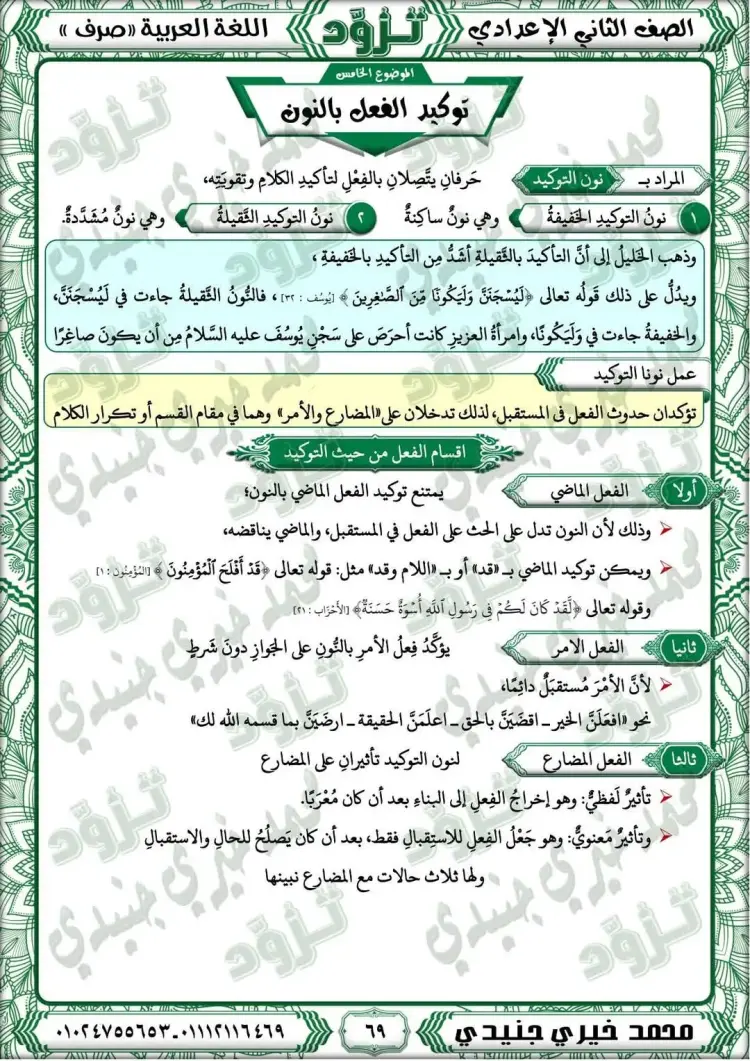 الصف الثاني الإعدادي
تزوّد
اللغة العربية «صرف »
الموضوع الخامس
توكيد الفعل بالنون
المراد بـ نون التوكيد حَرفانِ يتَّصلانِ بالفِعْلِ لتأكيدِ الكلامِ وتقويَتِه،
١ نونُ التوكيدِ الخَفيفةُ وهي نونٌ ساكِنةٌ ٢ نونُ التوكيدِ الثَّقيلةُ وهي نونٌ مُشَدَّدةٌ.
وذهب الخَليلُ إلى أنَّ التأكيدَ بالثَّقيلةِ أشَدُّ مِن التأكيدِ بالخَفيفةِ ،
ويدُلُّ على ذلك قَولُه تعالى ﴿لَيُسۡجَنَنَّ وَلَيَكُونٗا مِّنَ ٱلصَّٰغِرِينَ ﴾ [يُوسُف : ٣٢] ، فالنُّونُ الثَّقيلةُ جاءت في لَيُسْجَنَنَّ،
والخفيفةُ جاءت في وَلَيَكُونًا، وامرأةُ العزيزِ كانت أحرَصَ على سَجْنِ يُوسُفَ عليه السلامُ مِن أن يكونَ صاغِرًا
عمل نونا التوكيد
تؤكدان حدوث الفعل فى المستقبل، لذلك تدخلان على«المضارع والأمر» وهما في مقام القسم أو تكرار الكلام
اقسام الفعل من حيث التوكيد
أولا الفعل الماضي يمتنع توكيد الفعل الماضي بالنون؛
وذلك لأن النون تدل على الحث على الفعل في المستقبل، والماضي يناقضه،
ويمكن توكيد الماضي بـ «قد» أو بـ «اللام وقد» مثل: قوله تعالى ﴿قَدۡ أَفۡلَحَ ٱلۡمُؤۡمِنُونَ ﴾ [المُؤۡمِنُون : ١]
وقوله تعالى ﴿لَّقَدۡ كَانَ لَكُمۡ فِي رَسُولِ ٱللَّهِ أُسۡوَةٌ حَسَنَةٞ﴾ [الأَحۡزَاب : ٢١]
ثانيا الفعل الامر يؤكَّدُ فِعلُ الأمرِ بالنُّونِ على الجَوازِ دونَ شَرطٍ
لأنَّ الأمْرَ مُستقبَلٌ دائِمًا،
نحو «افعَلَنَّ الخير ــ اقضَيَنَّ بالحق ــ اعلَمَنَّ الحقيقة ــ ارضَيَنَّ بما قسمه الله لك»
ثالثا الفعل المضارع لنون التوكيد تأثيرانِ على المضارع
تأثيرٌ لَفظيٌّ: وهو إخراجُ الفِعلِ إلى البناءِ بعد أن كان مُعْرَبًا.
وتأثيرٌ مَعنويٌّ: وهو جَعْلُ الفِعلِ للاستِقبالِ فقط، بعد أن كان يَصلُحُ للحالِ والاستقبالِ
ولها ثلاث حالات مع المضارع نبينها
محمد خيري جنيدي
٦٩
٠١١١٢١١٦٤٦٩ـ٠١٠٢٤٧٥٥٦٥٣